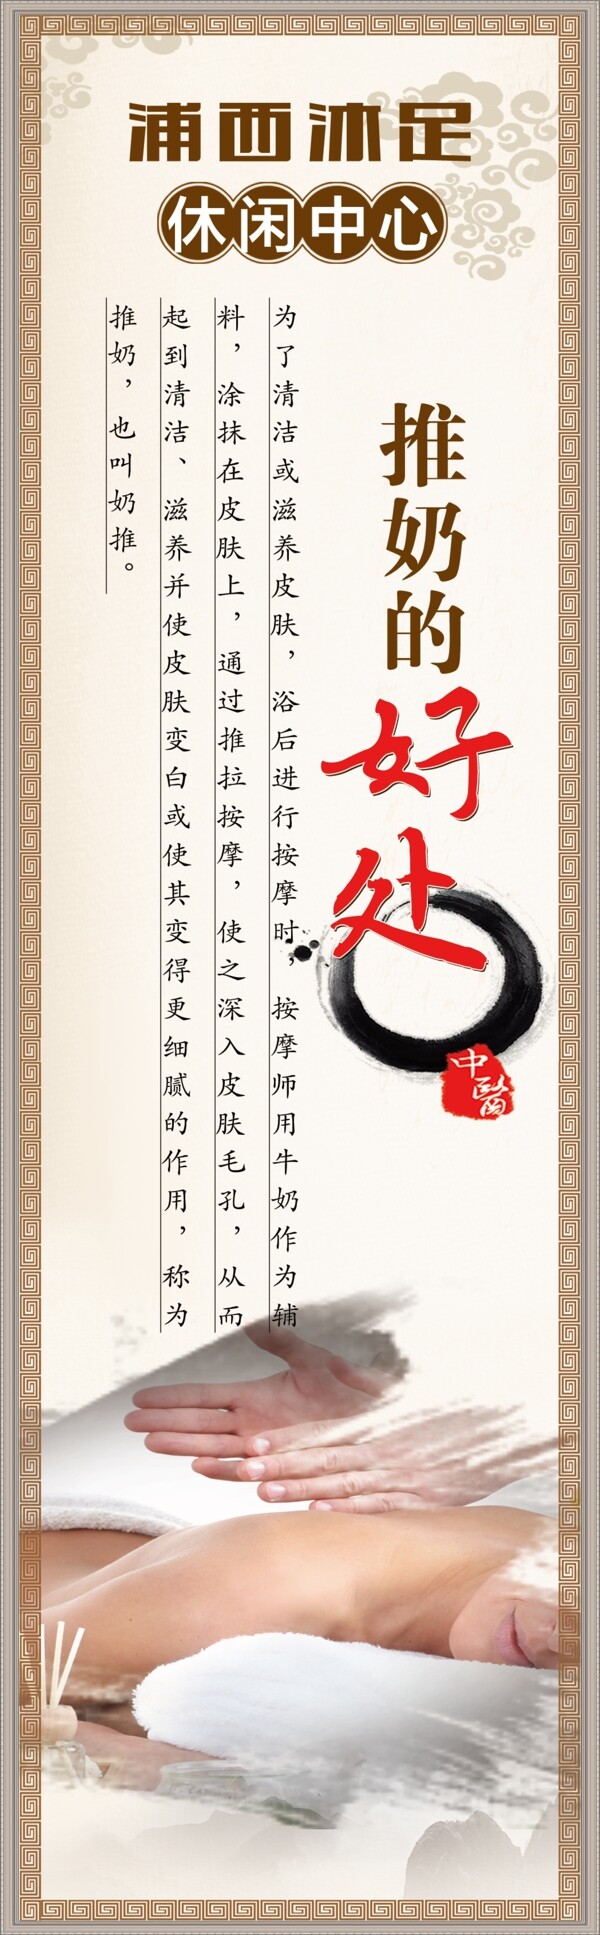 浦西沐足
休闲中心
推奶的
好处
中醫
为了清洁或滋养皮肤，浴后进行按摩时，按摩师用牛奶作为辅
料，涂抹在皮肤上，通过推拉按摩，使之深入皮肤毛孔，从而
起到清洁、滋养并使皮肤变白或使其变得更细腻的作用，称为
推奶，也叫奶推。